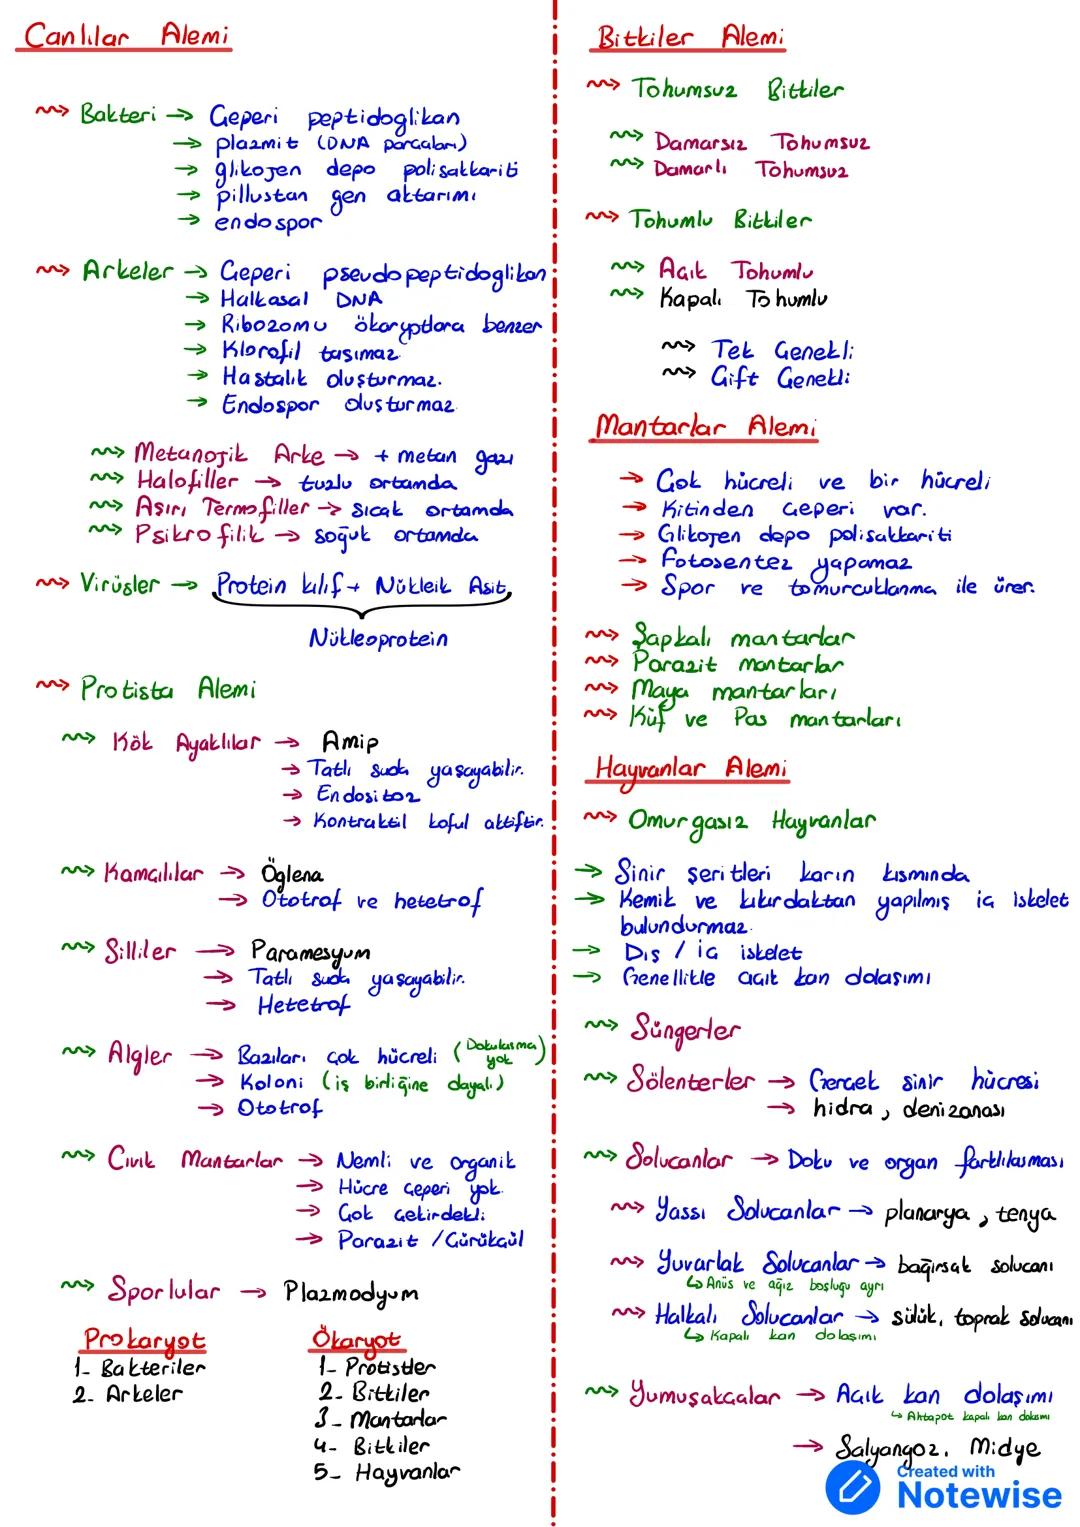 Canlılar Alemi
Bakteri → Çeperi peptidoglikan
→ plazmit (DNA parçaları)
→ glikojen depo polisakkariti
→ pillustan gen aktarımı
→ endospor
Arkeler → Çeperi pseudopeptidoglikan
→ Halkasal DNA
→ Ribozomu ökaryotlara benzer
→ Klorofil taşımaz
→ Hastalık oluşturmaz.
→ Endospor oluşturmaz
Metanojik Arke → + metan gazı
Halofiller → tuzlu ortamda
Aşırı Termofiller → sıcak ortamda
Psikrofilik → soğuk ortamda
Virüsler → Protein kılıf + Nükleik Asit
Nükleoprotein
Protista Alemi
Kök Ayaklılar → Amip
→ Tatlı suda yaşayabilir.
→ Endositoz
→ Kontraktil koful aktiftir.
Kamçılılar → Öglena
→ Ototrof ve hetetrof
Silliler → Paramesyum
→ Tatlı suda yaşayabilir.
→ Hetetrof
Algler → Bazıları çok hücreli (Dokulaşma yok)
→ Koloni (iş birliğine dayalı)
→ Ototrof
Cıvık Mantarlar → Nemli ve organik
→ Hücre çeperi yok.
→ Çok çekirdekli
→ Parazit / Çürükçül
Sporlular → Plazmodyum
Prokaryot
1- Bakteriler
2- Arkeler
Ökaryot
1- Protistler
2- Bitkiler
3- Mantarlar
4- Bitkiler
5- Hayvanlar
Bitkiler Alemi
Tohumsuz Bitkiler
Damarsız Tohumsuz
Damarlı Tohumsuz
Tohumlu Bitkiler
Açık Tohumlu
Kapalı Tohumlu
Tek Çenekli
Çift Çenekli
Mantarlar Alemi
→ Çok hücreli ve bir hücreli
→ Kitinden çeperi var.
→ Glikojen depo polisakkariti
→ Fotosentez yapamaz
→ Spor ve tomurcuklanma ile ürer.
Şapkalı mantarlar
Parazit mantarlar
Maya mantarları
Küf ve Pas mantarları
Hayvanlar Alemi
Omurgasız Hayvanlar
→ Sinir şeritleri karın kısmında
→ Kemik ve kıkırdaktan yapılmış iç iskelet
bulundurmaz.
→ Dış / iç iskelet
→ Genellikle açık kan dolaşımı
Süngerler
Sölenterler → Gerçek sinir hücresi
→ hidra, denizanası
Solucanlar → Doku ve organ farklılaşması
Yassı Solucanlar → planarya, tenya
Yuvarlak Solucanlar → bağırsak solucanı
↳ Anüs ve ağız boşluğu ayrı
Halkalı Solucanlar → sülük, toprak solucanı
↳ Kapalı kan dolaşımı
Yumuşakçalar → Açık kan dolaşımı
↳ Ahtapot kapalı kan dolaşımı
→ Salyangoz, Midye
Created with
Notewise